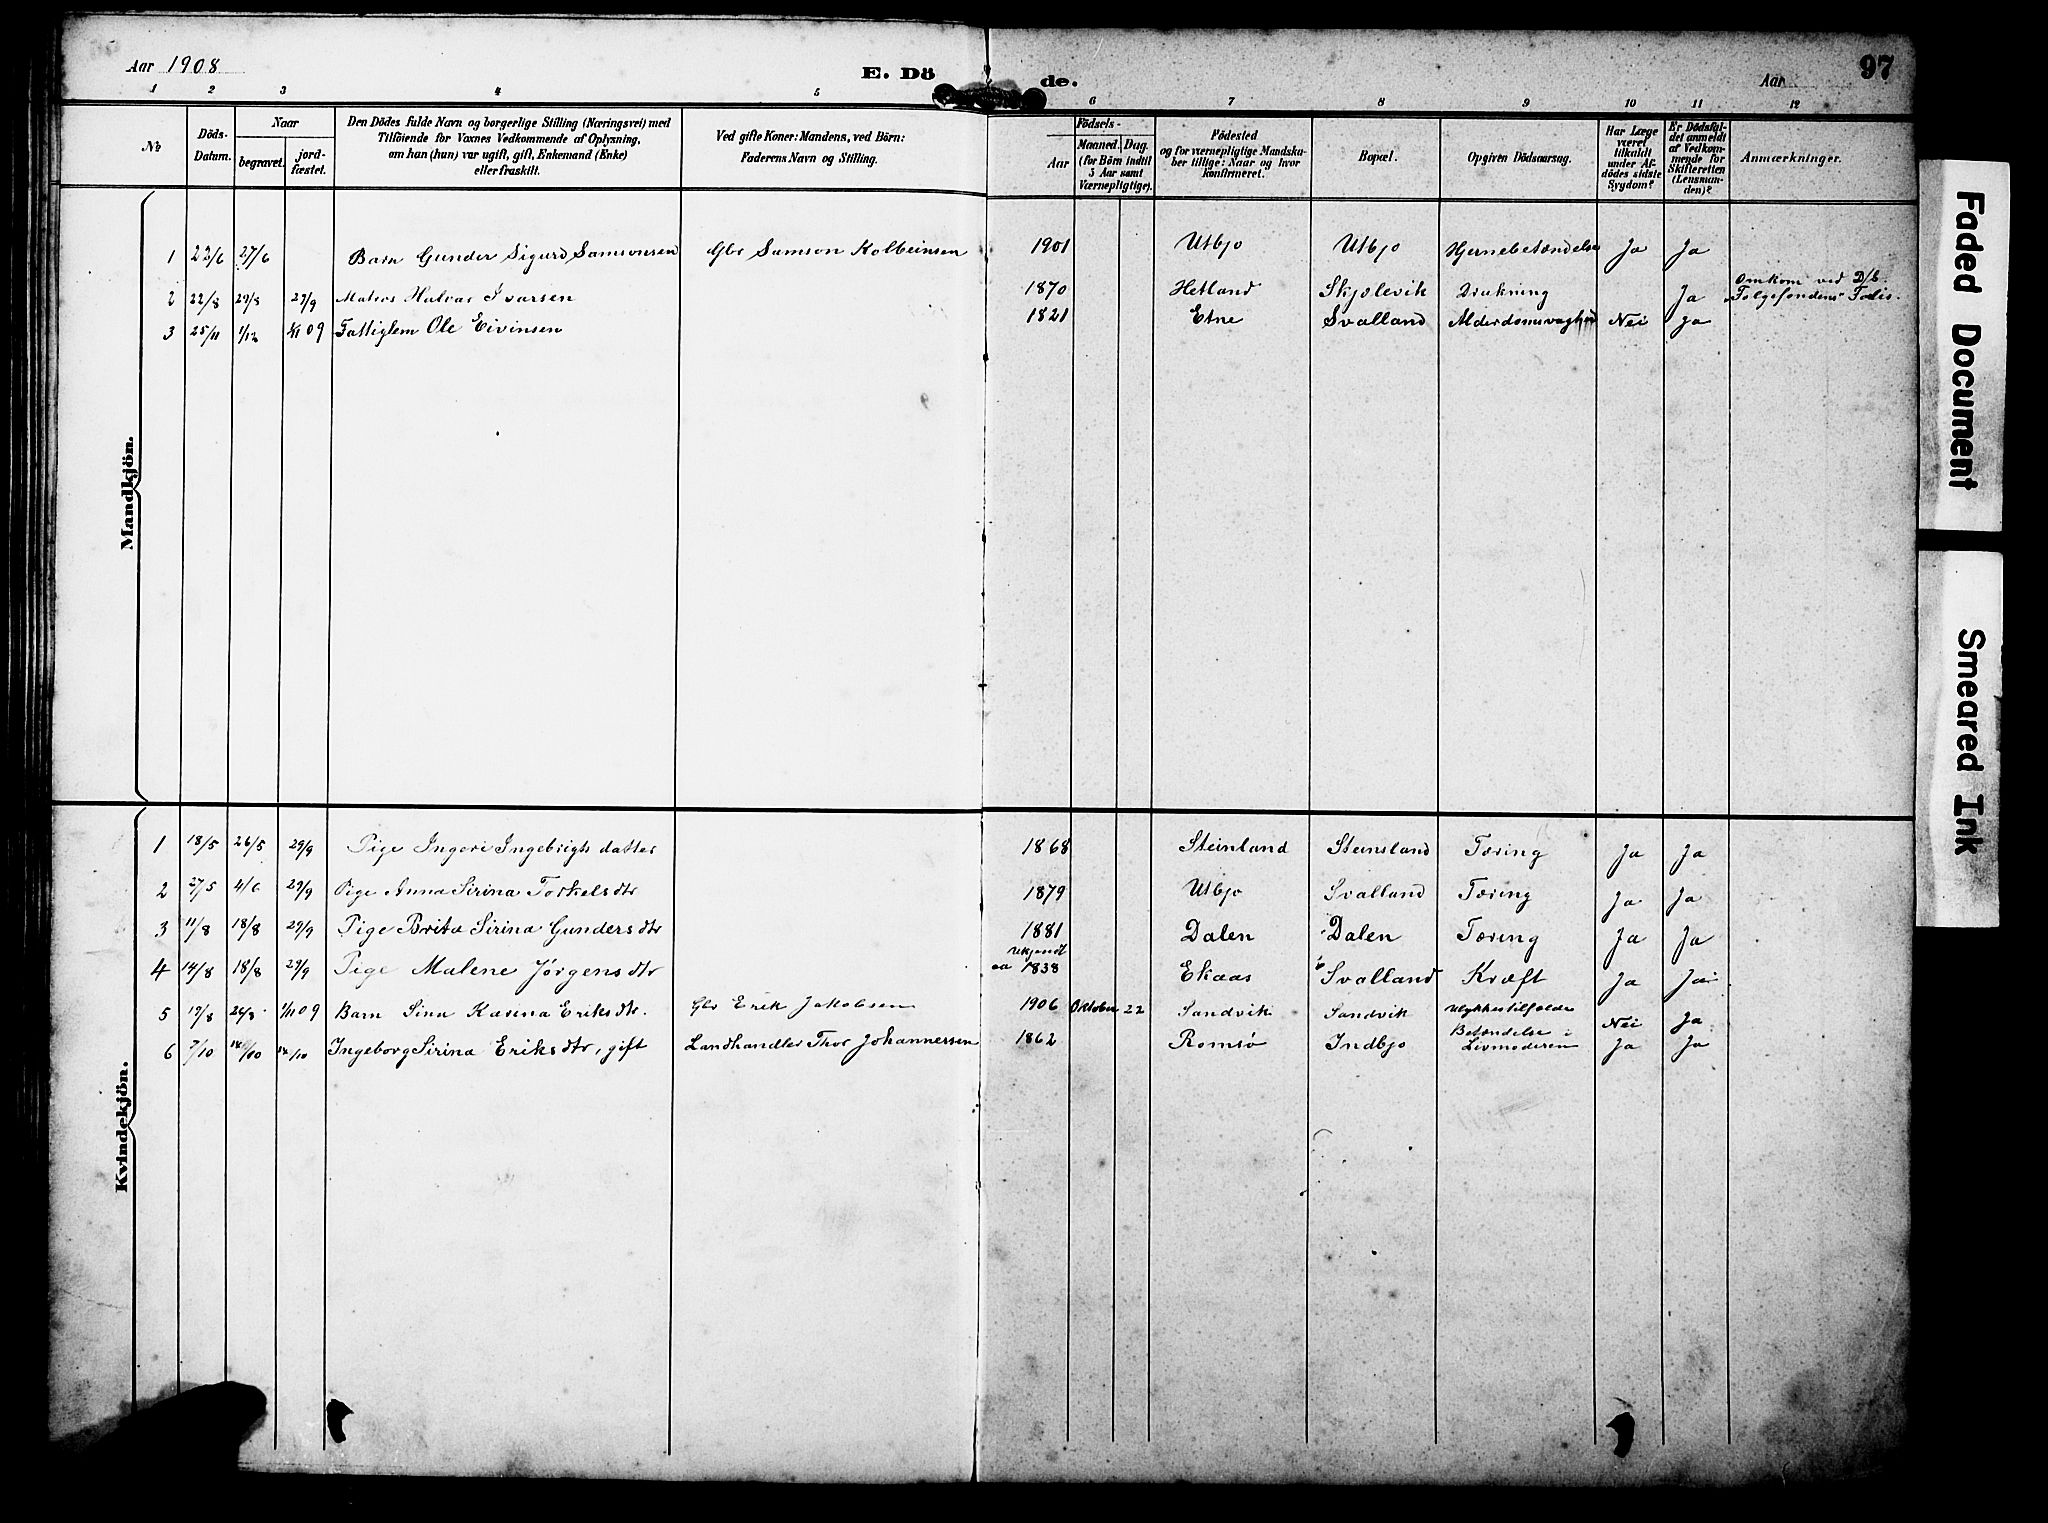 Aar 1908
E. Dö
de.
Aar
97
1 2 3 4 5 6 7 8 9 10 11 12
No
Döds-
Datum.
Naar
begravet.
jord-
fæstet.
Den Dödes fulde Navn og borgerlige Stilling (Næringsvei) med
Tilföiende for Voxnes Vedkommende af Oplysning,
om han (hun) var ugift, gift, Enkemand (Enke)
eller fraskilt.
Ved gifte Koner: Mandens, ved Börn:
Faderens Navn og Stilling.
Födsels-
Aar
Maaned.
Dag.
(for Börn indtil
5 Aar samt
Værnepligtige).
Födested
og for værnepligtige Mandska-
ber tillige: Naar og hvor
konfirmeret.
Bopæl.
Opgiven Dödsaarsag.
Har Læge
været
tilkaldt
under Af-
dödes sidste
Sygdom?
Er Dödsfal-
det anmeldt
af Vedkom-
mende for
Skifteretten
(Lensman-
den)?
Anmærkninger.
Mandkjön.
1 22/6 27/6 Barn Gunder Sigurd Samsonsen Gbr Samson Kolbeinsen 1901 Utbjo Utbjo Hjernebetændelse Ja Ja
2 22/8 29/8 29/9 Matros Halvar Ivarsen 1870 Hetland Skjolevik Drukning Ja Omkom ved D/S.
"Folgefondens" Forlis.
3 25/11 1/12 09 Fattiglem Ole Eivinsen 1821 Etne Svalland Alderdomsvaghed Nei Ja
Kvindekjön.
1 18/5 26/5 29/9 Pige Ingeri Ingebrigts datter 1868 Steinland Steinsland Tæring Ja Ja
2 27/5 4/6 29/9 Pige Anna Sirina Torkelsdtr 1879 Utbjo Svalland Tæring Ja Ja
3 11/8 18/8 29/9 Pige Brita Sirina Gundersdtr 1881 Dalen Dalen Tæring Ja Ja
4 14/8 18/8 29/9 Pige Malene Jørgensdtr Ukjendt
ca 1838 Ekaas Svalland Kræft Ja Ja
5 19/8 26/8 1/11 09 Barn Sina Karina Eriksdtr. Gbr Erik Jakobsen 1906 Oktober 22 Sandvik Sandvik Ulykkestilfælde Nei Ja
6 7/10 14/10 14/10 Ingeborg Sirina Eriksdtr, gift Landhandler Thor Johannessen 1862 Romsø Indbjo Betændelse i
Livmoderen Ja Ja
Faded Document
Smeared Ink